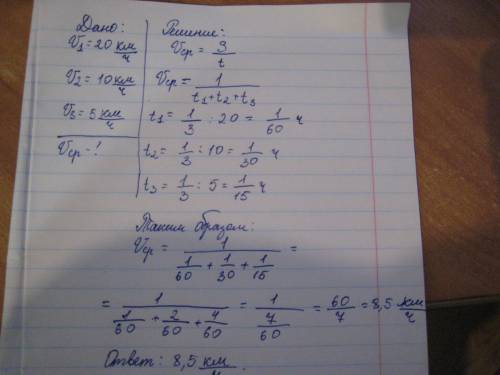 Дано:
V₁ = 20 км/ч
V₂ = 10 км/ч
V₃ = 5 км/ч
Vср - ?
Решение:
Vср = S/t
Vср = 1/(t₁+t₂+t₃)
t₁ = 1/3 : 20 = 1/60 ч
t₂ = 1/3 : 10 = 1/30 ч
t₃ = 1/3 : 5 = 1/15 ч
Таким образом:
Vср = 1/(1/60 + 1/30 + 1/15) =
= 1/(1/60 + 2/60 + 4/60) = 1/(7/60) = 60/7 = 8,5 км/ч
Ответ: 8,5 км/ч.